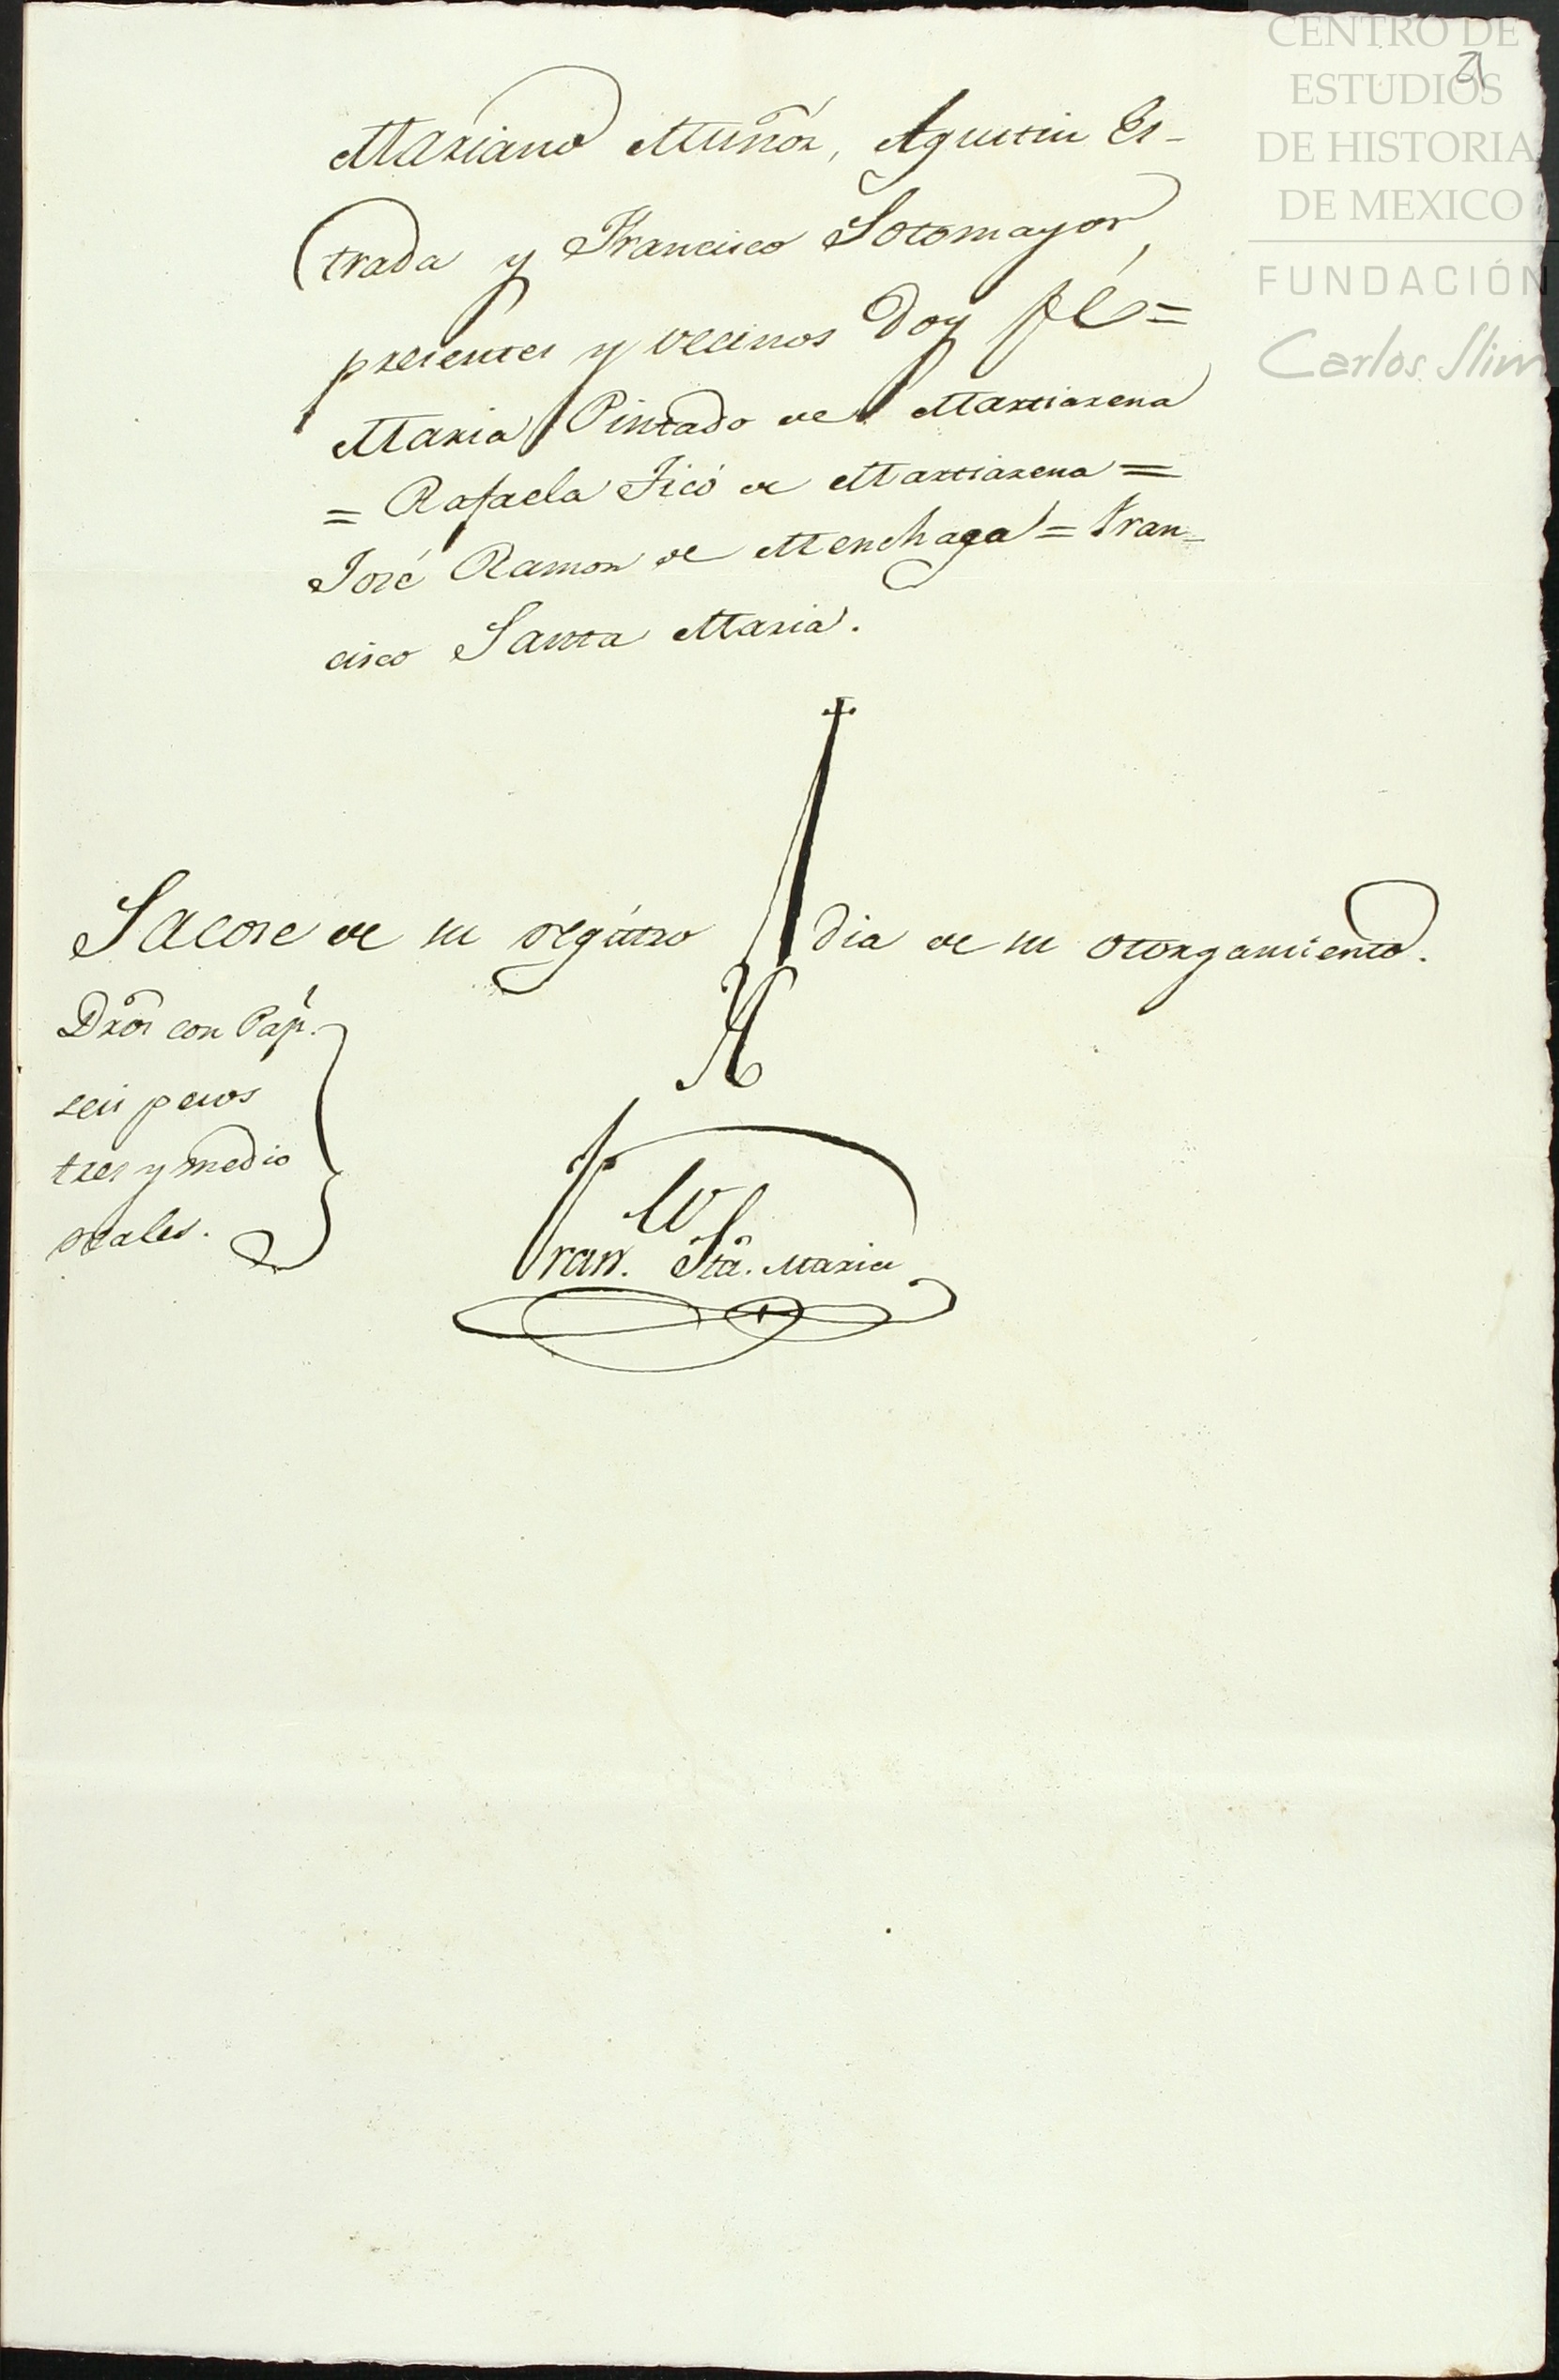 CENTRO DE
ESTUDIOS
DE HISTORIA
DE MEXICO
FUNDACIÓN
Carlos Slim
21
Mariano Muñóz, Agustin Es-
trada y Francisco Sotomayor,
presentes y vecinos doy fé =
Maria Pintado de Martiarena
= Rafaela Ficó de Martiarena =
José Ramon de Menchaca = Fran-
cisco Santa Maria.
Sacose de su registro dia de su otorgamiento.
Dros con Pap.l
seis pesos
tres y medio
reales.
Fran. Sta. Maria